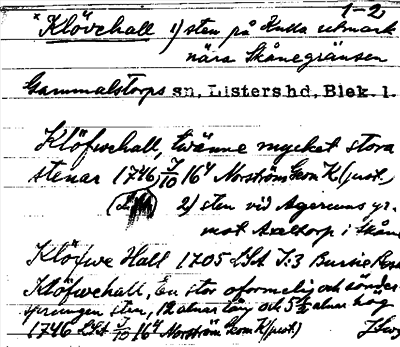 1-2
*Klövehall 1) sten på Hulla utmark
nära Skånegränsen
Gammalstorps sn, Listers hd, Blek. l.
Klöfwehall, twänne mycket stora
stenar 1746 7/10 16 4 Norström Geom K (just.)
2) sten vid Agerums gr.
mot Axeltorp i Skåne
Klöfwe Hall 1705 LSt I:3
Klöfwehall, En stor oformelig och sönder
sprungen sten, 12 alnar lång och 5 1/2 alnar hög
1746 LSt 7/10 16 4 Norström Geom K (just.)